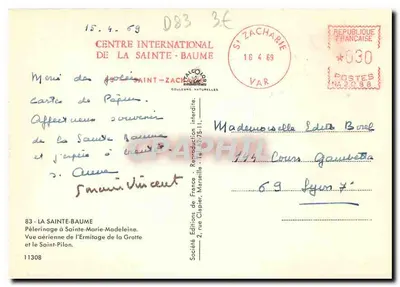 15.4.69
D83 3€
CENTRE INTERNATIONAL
DE LA SAINTE-BAUME
83 SAINT-ZACHARIE
ST ZACHARIE
16 4 69
VAR
RÉPUBLIQUE
FRANÇAISE
★030
POSTES
COULEURS NATURELLES
Merci des jolies
Cartes de Pépien.
Affectueux souvenir
de la Sainte Baume
et j'espère à bientôt
Vincent
Mademoiselle Edith Borel
144 Cours Gambetta
69 Lyon 7e
83 - LA SAINTE-BAUME
Pèlerinage à Sainte-Marie-Madeleine.
Vue aérienne de l'Ermitage de la Grotte
et le Saint-Pilon.
11308
Société Editions de France - Reproduction interdite.
2, rue Clapier, Marseille - Tél.